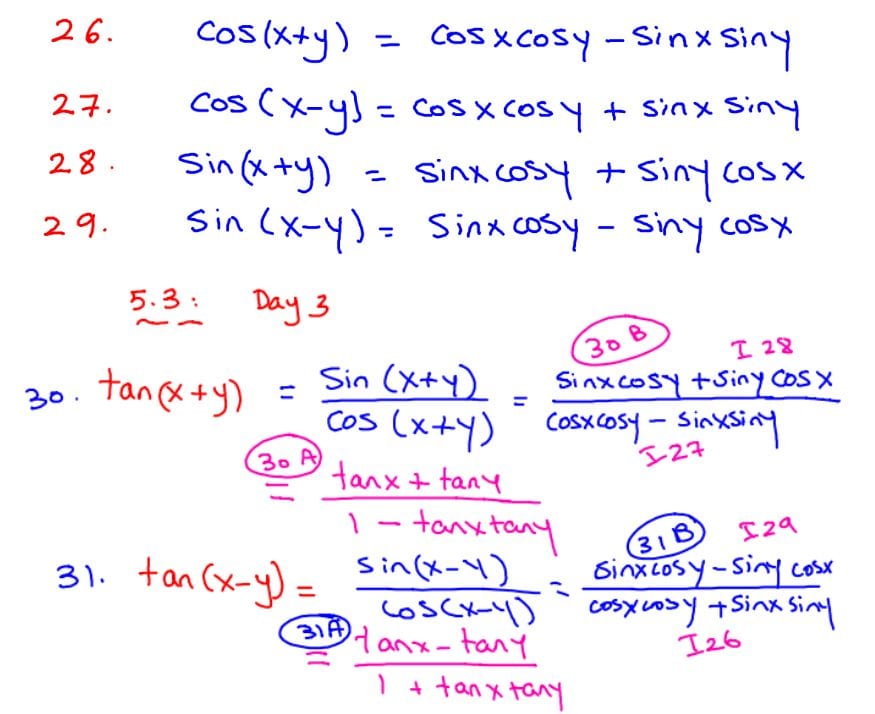 26. cos(x+y) = cosxcosy - sinx siny
27. cos(x-y) = cosx cosy + sinx siny
28. sin(x+y) = sinx cosy + siny cosx
29. sin(x-y) = sinx cosy - siny cosx
5.3: Day 3
30B I 28
30. tan(x+y) = sin(x+y)/cos(x+y) = sinxcosy + siny cosx/cosxcosy - sinxsiny
I-27
30A = tanx + tany/1 - tanxtany
31B I29
31. tan(x-y) = sin(x-y)/cos(x-y) = sinxcosy - siny cosx/cosxcosy + sinx siny
I26
31A = tanx - tany/1 + tanxtany